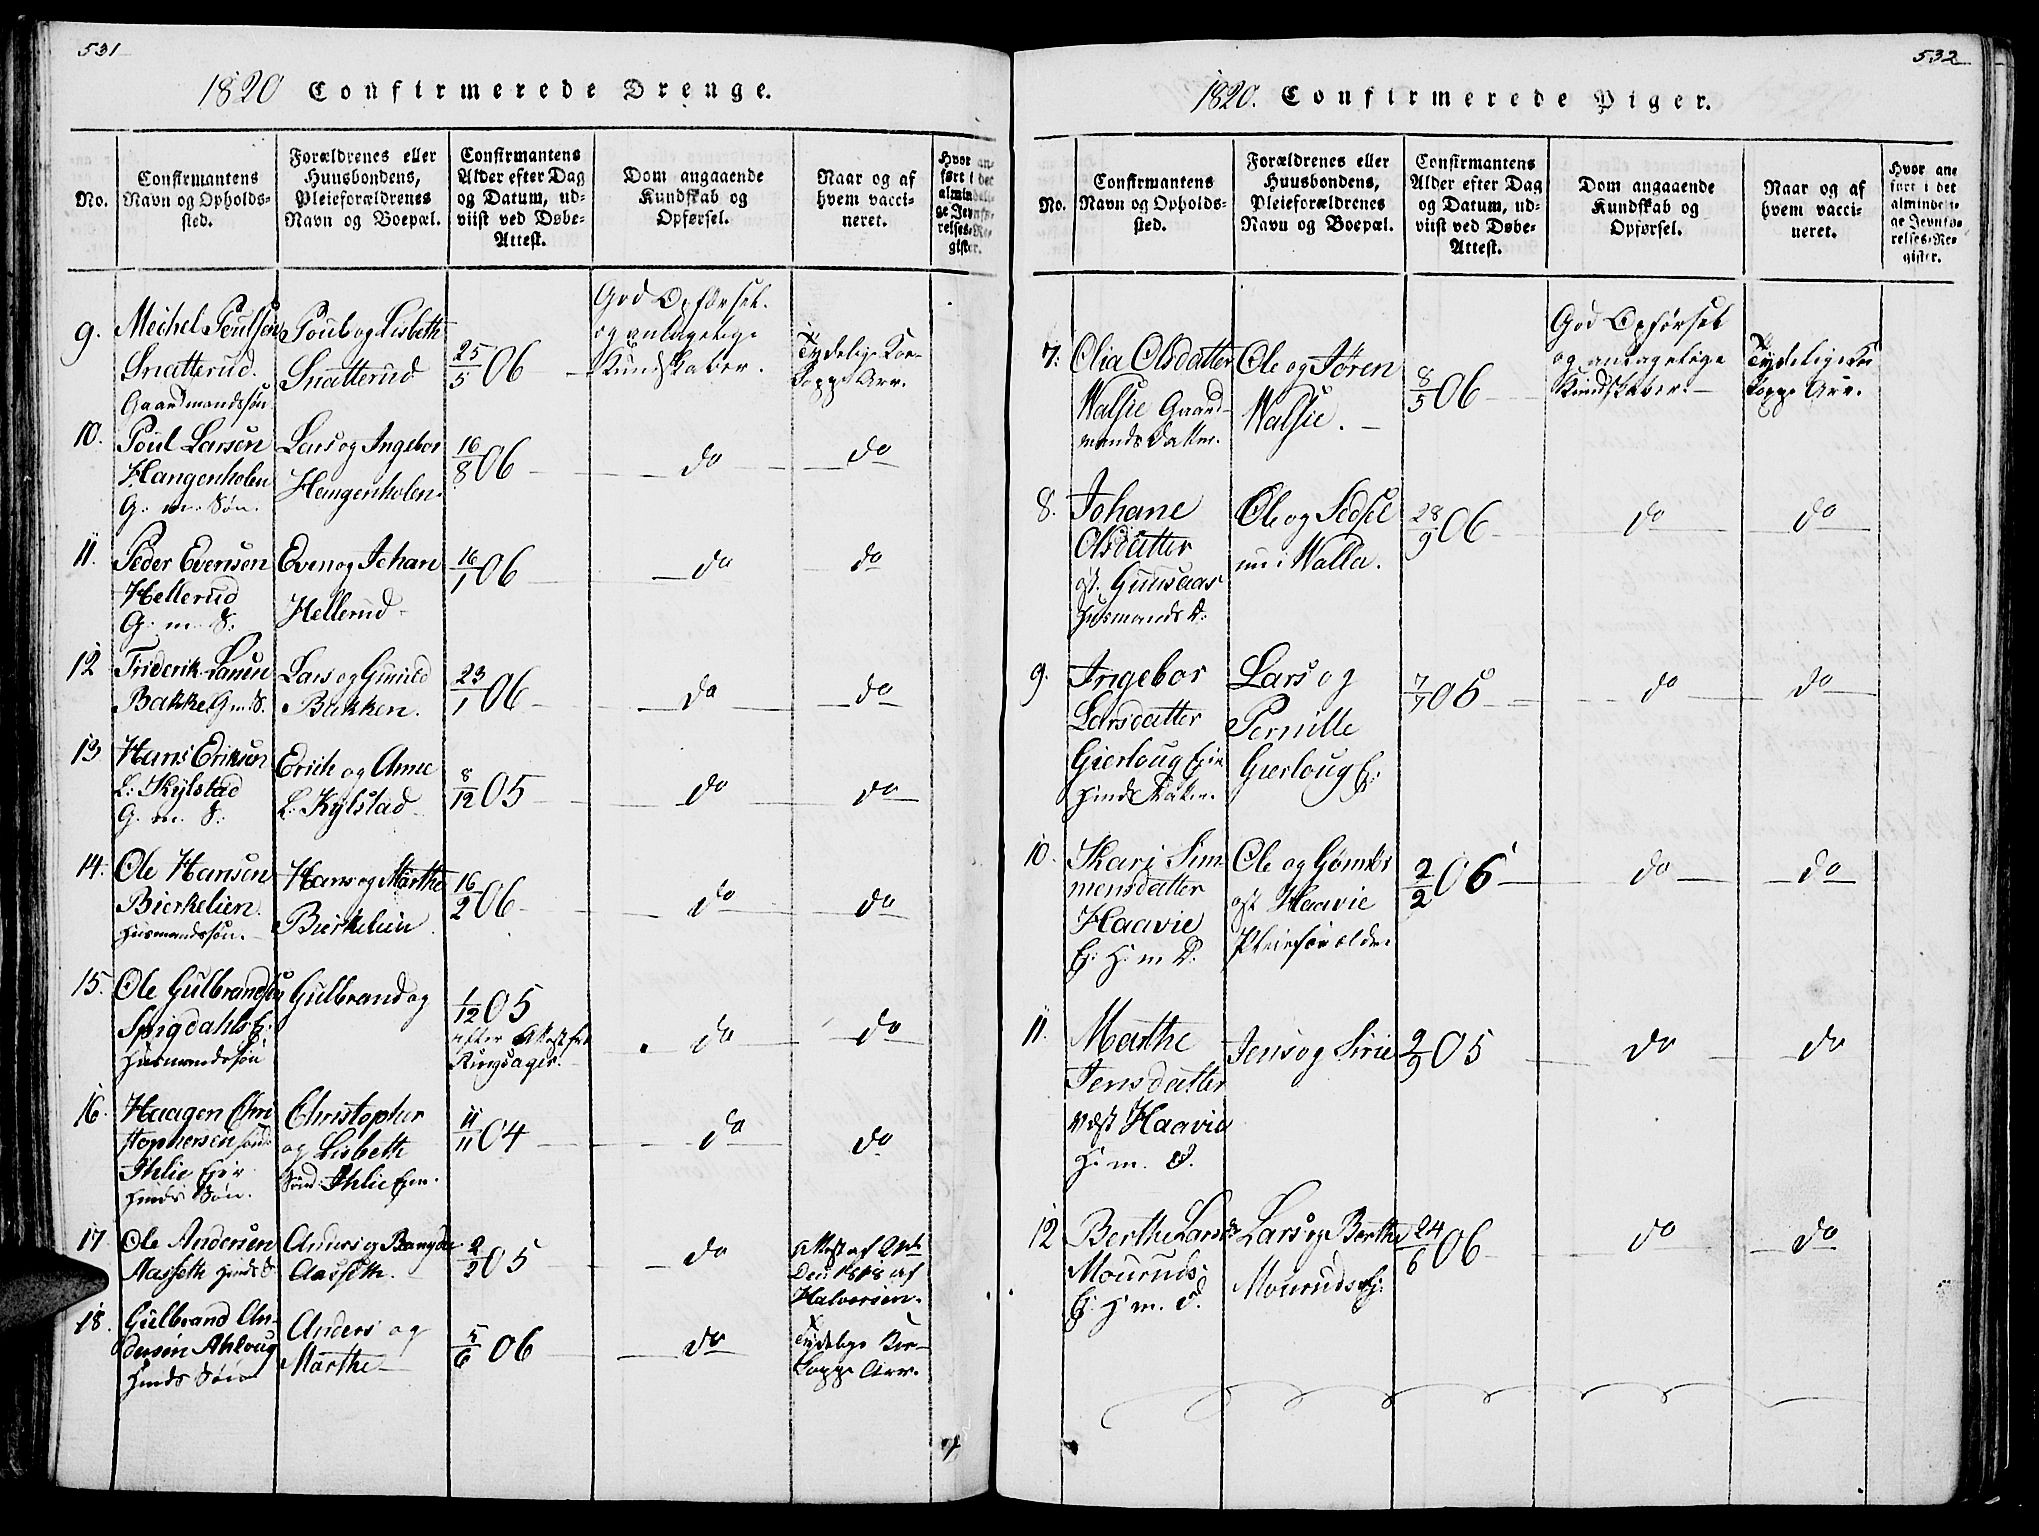 531
1820 Confirmerede Drenge.
No.
Confirmantens
Navn og Opholds-
sted.
Forældrenes eller
Huusbondens,
Pleieforældrenes
Navn og Boepæl.
Confirmantens
Alder efter Dag
og Datum, ud-
viist ved Døbe-
Attest.
Dom angaaende
Kundskab og
Opførsel.
Naar og af
hvem vacci-
neret.
Hvor an-
ført i det
almindeli-
ge Jevnfø-
relses-Re-
gister.
9.
Mechel Poulsen
Snatterud.
Gaardmandssøn
Poul og Lisbeth
Snatterud
25/5 06
God Opførsel.
og antagelige
Kundskaber.
Tydelige Koe-
koppe Arr.
10.
Poul Larsen
Hangenholen
G. m. Søn.
Lars og Ingebor
Hangenholen.
16/8 06
do
do
11.
Peder Evensen
Hellerud
G. m. S.
Even og Johan
Hellerud
16/1 06
do
do
12
Friderik Larsen
Bakke G m S.
Lars og Gunild
Bakken.
23/1 06
do
do
13
Hans Eriksen
L: Kylstad
G. m. S:
Erich og Anne
L: Kylstad
8/12 05
do
do
14.
Ole Hansen
Bierkelien.
Husmandssøn.
Hans og Marthe
Bierkelien
16/2 06
do
do
15.
Ole Gulbrandsen
Spigdahls Ej:
Husmandssøn
Gulbrand og
1/12 05
efter Attest fra
Ringsager.
do
do
16.
Haagen Chri
stophersen
Ihlie Eier
Husmds Søn.
Christopher
og Lisbeth
Sønd: Ihlie
11/11 04
do
do
17
Ole Andersen
Aasseth
Anders og
Aasseth.
2/2 05
do
Attest af
Den 1818 af
Halvorsen.
18.
Gulbrand An-
dersen
Søn
Anders og
Marthe
5/6 06
do
Tydelige Koe-
koppe Arr.
532
1820. Confirmerede Piger.
No.
Confirmantens
Navn og Opholds-
sted.
Forældrenes eller
Huusbondens,
Pleieforældrenes
Navn og Boepæl.
Confirmantens
Alder efter Dag
og Datum, ud-
viist ved Døbe-
Attest.
Dom angaaende
Kundskab og
Opførsel.
Naar og af
hvem vacci-
neret.
Hvor an-
ført i det
almindeli-
ge Jevnfø-
relses-Re-
gister.
7.
Olia Olsdatter
Walsie Gaard-
mands Datter.
Ole og Jøren
Walsie.
8/5 06
God Opførsel
og antagelige
Kundskaber.
Tydelige Koe
koppe Arr.
8.
Johane
Olsdatter
øst. Gunsaas
Husmands D:
Ole og Sedsel
nu i Walla.
28/9 06
do
do
9.
Ingebor
Larsdatter
Gierloug Eie
Lars og
Pernille
Gierloug Ej:
7/7 05
do
do
10.
Kari Sim
mensdatter
Haavie
Ej: H: m D:
Ole og
øst Haavie
Pleieforældre
2/2 06
do
do
11.
Marthe
Jensdatter
Vest Haavie
H: m. D.
Jens og Sirie
2/9 05
do
do
12
Berthe Larsd:
Mouruds:
Ej: H: m. D.
Lars og Berthe
Mouruds Ej:
24/6 06
do
do